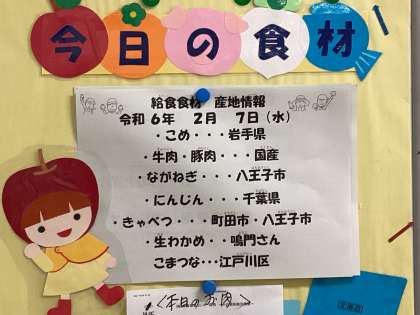 今日の食材
給食食材 産地情報
令和 6年 2月 7日(水)
・こめ・・・岩手県
・牛肉・豚肉・・・国産
・ながねぎ・・・八王子市
・にんじん・・・千葉県
・きゃべつ・・・町田市・八王子市
・生わかめ・・鳴門さん
こまつな・・・江戸川区
＜本日のお肉＞
北海道